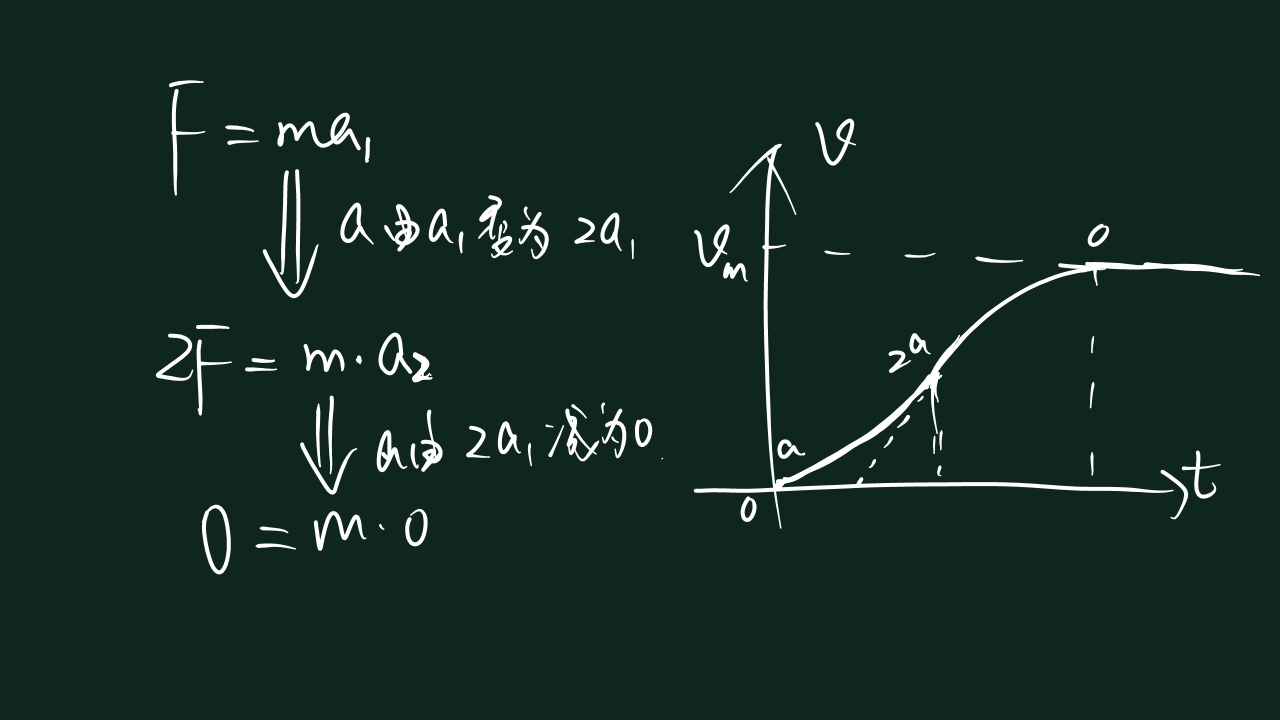 F = ma₁
a由a₁变为2a₁
2F = m·a₂
a由2a₁减为0
0 = m·0
v
vₘ
0
2a
a
0
t